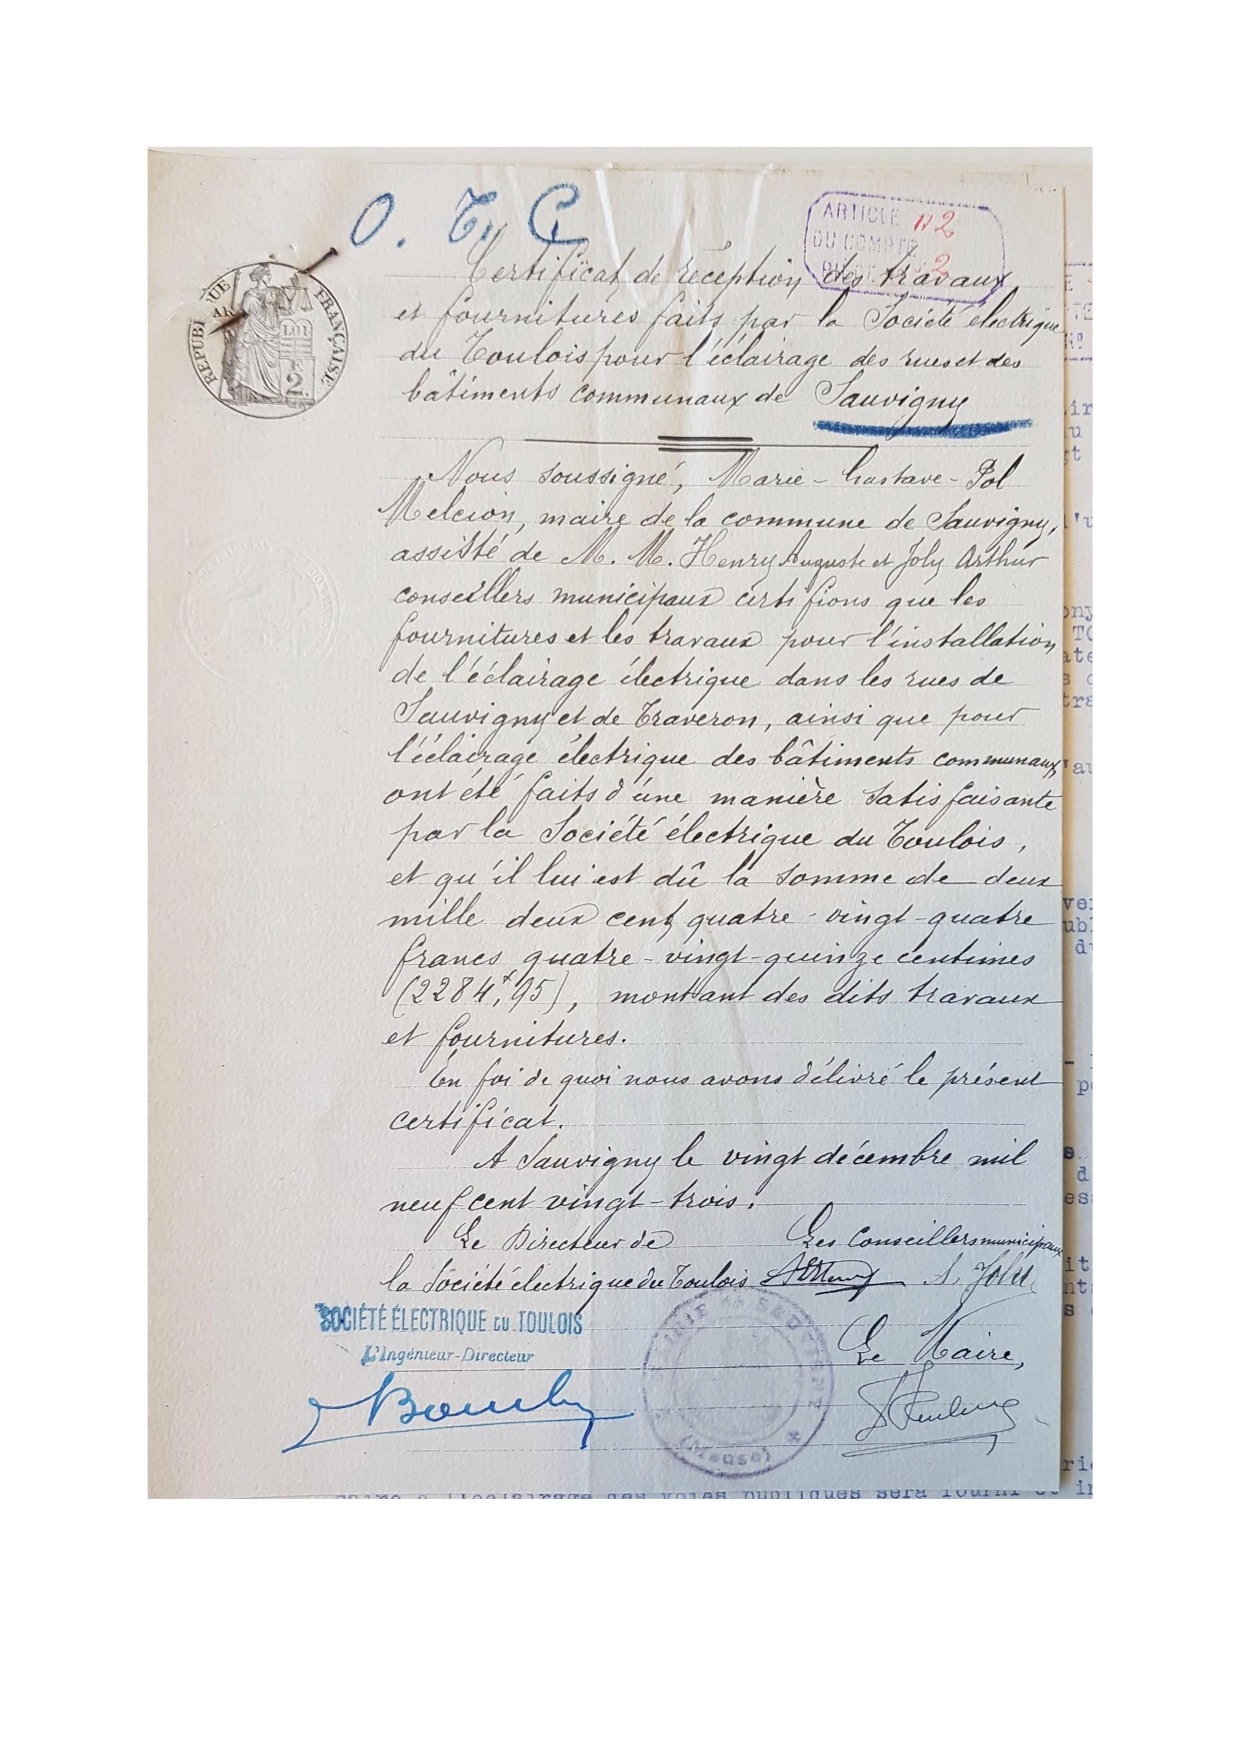 O. T. C.
ARTICLE 112
DU COMPTE
RÉPUBLIQUE FRANÇAISE
LOI
2
Certificat de réception des travaux
et fournitures faits par la Société électrique
du Toulois pour l'éclairage des rues et des
bâtiments communaux de Sauvigny
Nous soussigné, Marie-Gustave-Pol
Melcion, maire de la commune de Sauvigny,
assisté de M. M. Henry Auguste et Joly Arthur
conseillers municipaux certifions que les
fournitures et les travaux pour l'installation
de l'éclairage électrique dans les rues de
Sauvigny et de Traveron, ainsi que pour
l'éclairage électrique des bâtiments communaux
ont été faits d'une manière satisfaisante
par la Société électrique du Toulois,
et qu'il lui est dû la somme de deux
mille deux cent quatre-vingt-quatre
francs quatre-vingt-quinze centimes
(2284,f95), montant des dits travaux
et fournitures.
En foi de quoi nous avons délivré le présent
certificat.
A Sauvigny le vingt décembre mil
neuf cent vingt-trois.
Le Directeur de Les Conseillers municipaux
la Société électrique du Toulois A. Joly
SOCIÉTÉ ÉLECTRIQUE DU TOULOIS
L'Ingénieur-Directeur
Le Maire,
MAIRIE DE SAUVIGNY
(Meuse)